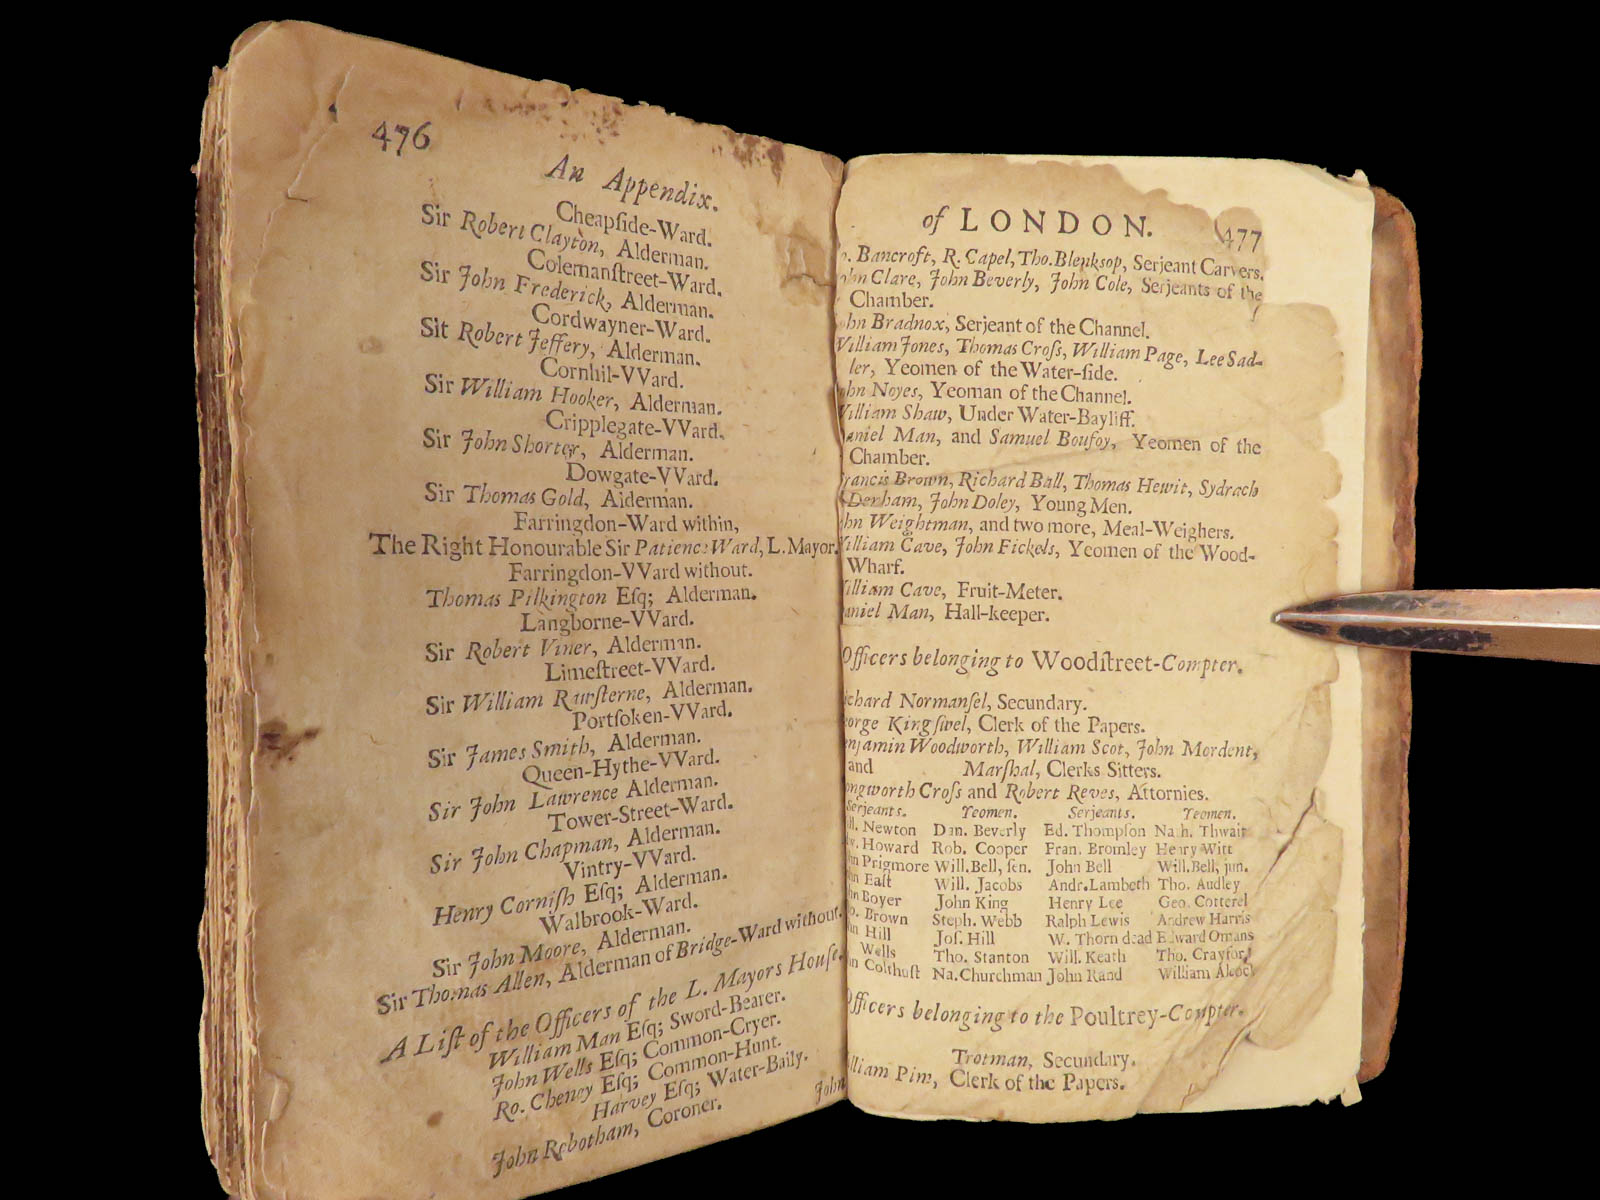 476
An Appendix.
Cheapſide-Ward.
Sir Robert Clayton, Alderman.
Colemanſtreet-Ward.
Sir John Frederick, Alderman.
Cordwayner-Ward.
Sit Robert Jeffery, Alderman.
Cornhil-VVard.
Sir William Hooker, Alderman.
Cripplegate-VVard.
Sir John Shorter, Alderman.
Dowgate-VVard.
Sir Thomas Gold, Alderman.
Farringdon-Ward within,
The Right Honourable Sir Patience Ward, L. Mayor.
Farringdon-VVard without.
Thomas Pilkington Eſq; Alderman.
Langborne-VVard.
Sir Robert Viner, Alderman.
Limeſtreet-VVard.
Sir William Rawſterne, Alderman.
Portſoken-VVard.
Sir James Smith, Alderman.
Queen-Hythe-VVard.
Sir John Lawrence Alderman.
Tower-Street-Ward.
Sir John Chapman, Alderman.
Vintry-VVard.
Henry Corniſh Eſq; Alderman.
Walbrook-Ward.
Sir John Moore, Alderman.
Sir Thomas Allen, Alderman of Bridge-Ward without.
A Liſt of the Officers of the L. Mayors Houſe.
William Man Eſq; Sword-Bearer.
John Wells Eſq; Common-Cryer.
Ro. Cheney Eſq; Common-Hunt.
Harvey Eſq; Water-Baily.
John Rebotham, Coroner.
John
of LONDON.
477
o. Bancroft, R. Capel, Tho. Blenksop, Serjeant Carvers.
ohn Clare, John Beverly, John Cole, Serjeants of the
Chamber.
ohn Bradnox, Serjeant of the Channel.
William Jones, Thomas Croſs, William Page, Lee Sad-
ler, Yeomen of the Water-ſide.
ohn Noyes, Yeoman of the Channel.
William Shaw, Under Water-Bayliff.
aniel Man, and Samuel Boufoy, Yeomen of the
Chamber.
rancis Brown, Richard Ball, Thomas Hewit, Sydrach
Derham, John Doley, Young Men.
ohn Weightman, and two more, Meal-Weighers.
William Cave, John Fickels, Yeomen of the Wood-
Wharf.
illiam Cave, Fruit-Meter.
aniel Man, Hall-keeper.
Officers belonging to Woodſtreet-Compter.
ichard Normanſel, Secundary.
eorge Kingſwel, Clerk of the Papers.
enjamin Woodworth, William Scot, John Mordent,
and Marſhal, Clerks Sitters.
ongworth Croſs and Robert Reves, Attornies.
Serjeants. Yeomen. Serjeants. Yeomen.
ll. Newton Dan. Beverly Ed. Thompſon Nath. Thwait
w. Howard Rob. Cooper Fran. Bromley Henry Witt
hn Prigmore Will. Bell, ſen. John Bell Will. Bell, jun.
hn Eaſt Will. Jacobs Andr. Lambeth Tho. Audley
hn Boyer John King Henry Lee Geo. Cotterel
o. Brown Steph. Webb Ralph Lewis Andrew Harris
hn Hill Joſ. Hill W. Thorn dead Edward Omans
Wells Tho. Stanton Will. Keath Tho. Crayford
hn Colthuſt Na. Churchman John Rand William Alcock
Officers belonging to the Poultrey-Compter.
Trotman, Secundary.
illiam Pim, Clerk of the Papers.